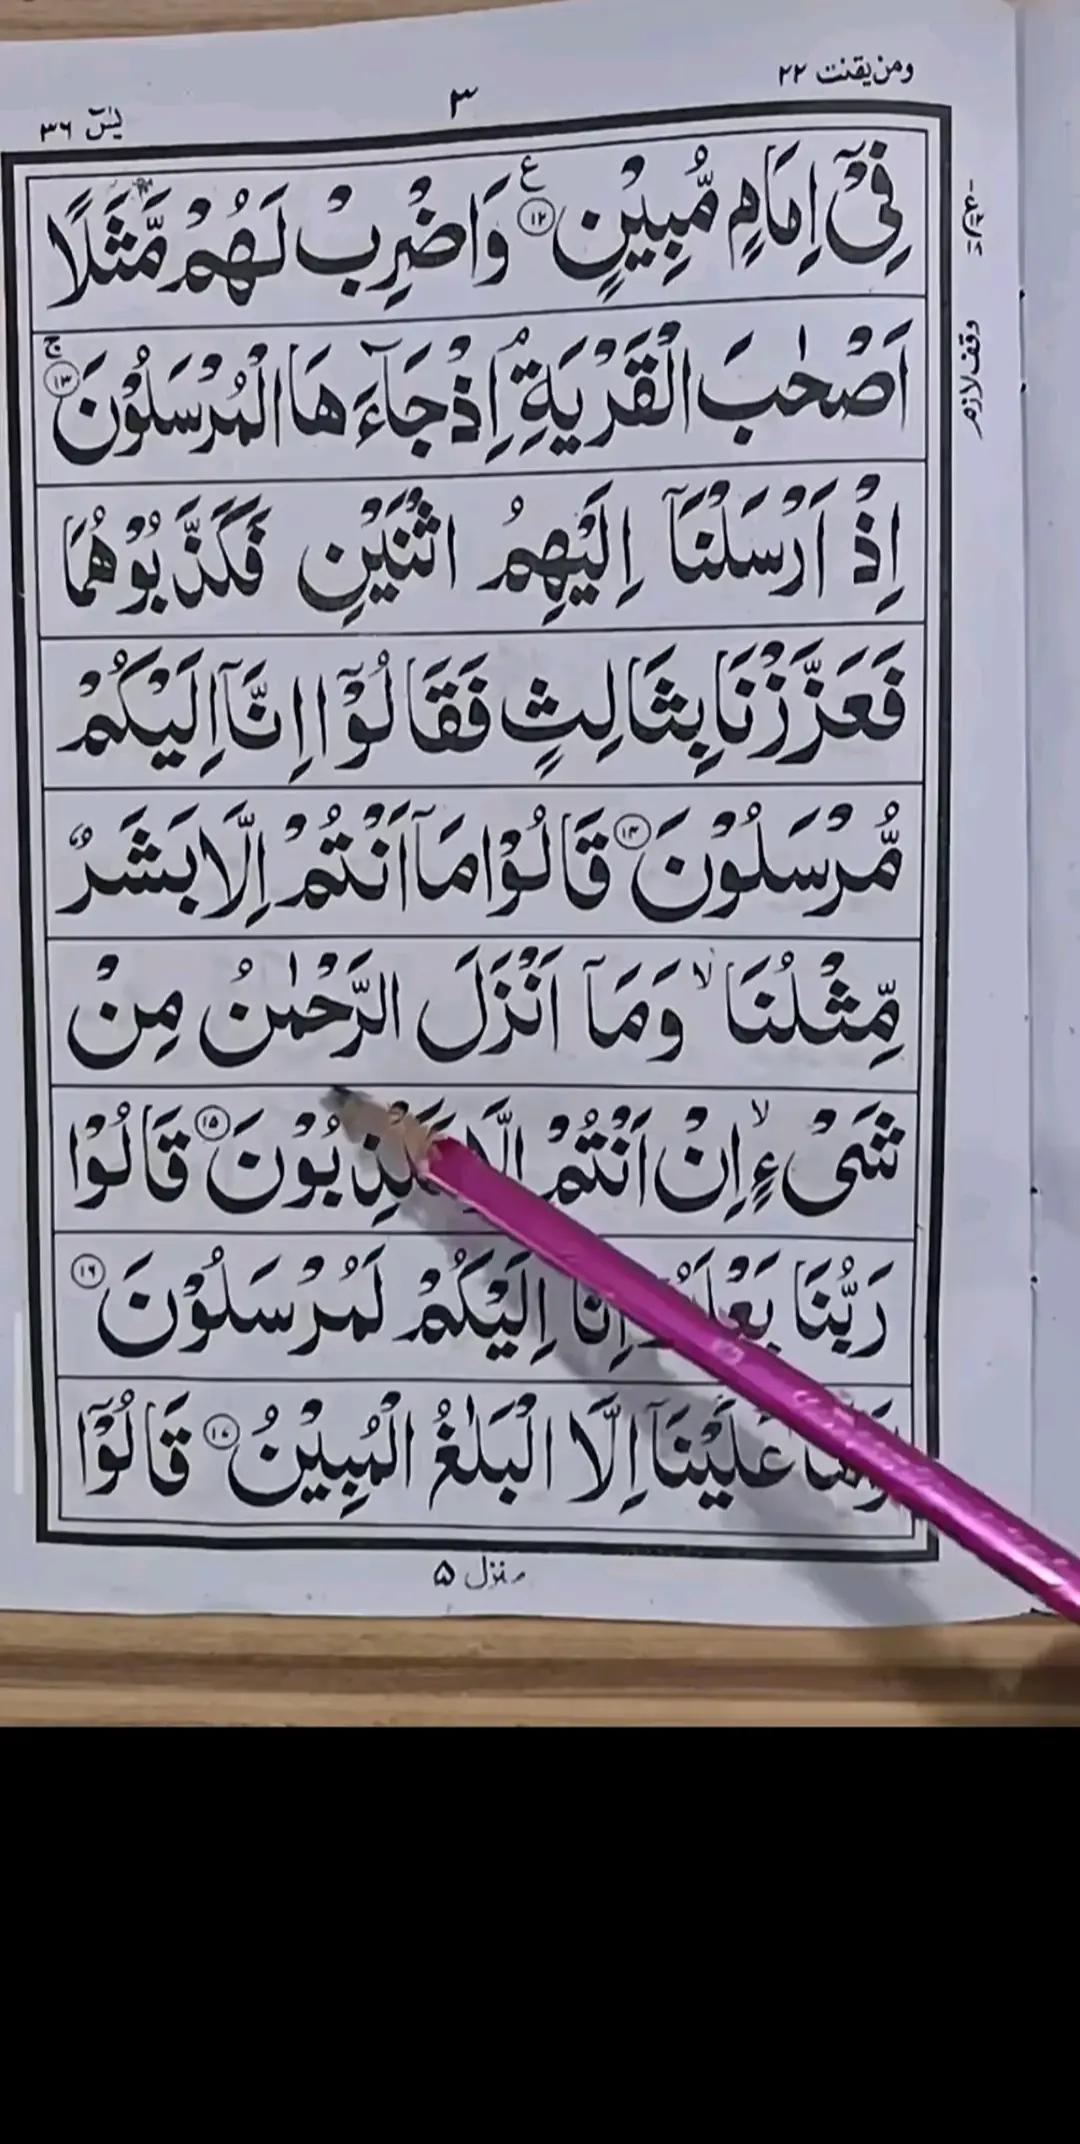 ومن يقنت ٢٢
٣
يٰسٓ ٣٦
فِیْۤ اِمَامٍ مُّبِیْنٍ ع ﴿۱۲﴾ وَاضْرِبْ لَهُمْ مَّثَلًا
اَصْحٰبَ الْقَرْیَةِ ۘ اِذْ جَآءَهَا الْمُرْسَلُوْنَ ﴿۱۳﴾ ج
اِذْ اَرْسَلْنَاۤ اِلَیْهِمُ اثْنَیْنِ فَكَذَّبُوْهُمَا
فَعَزَّزْنَا بِثَالِثٍ فَقَالُوْۤا اِنَّاۤ اِلَیْكُمْ
مُّرْسَلُوْنَ ﴿۱۴﴾ قَالُوْا مَاۤ اَنْتُمْ اِلَّا بَشَرٌ
مِّثْلُنَا ۙ وَمَاۤ اَنْزَلَ الرَّحْمٰنُ مِنْ
شَیْءٍ ۙ اِنْ اَنْتُمْ اِلَّا تَكْذِبُوْنَ ﴿۱۵﴾ قَالُوْا
رَبُّنَا یَعْلَمُ اِنَّاۤ اِلَیْكُمْ لَمُرْسَلُوْنَ ﴿۱۶﴾
وَمَا عَلَیْنَاۤ اِلَّا الْبَلٰغُ الْمُبِیْنُ ﴿۱۷﴾ قَالُوْۤا
وقف لازم
منزل ۵